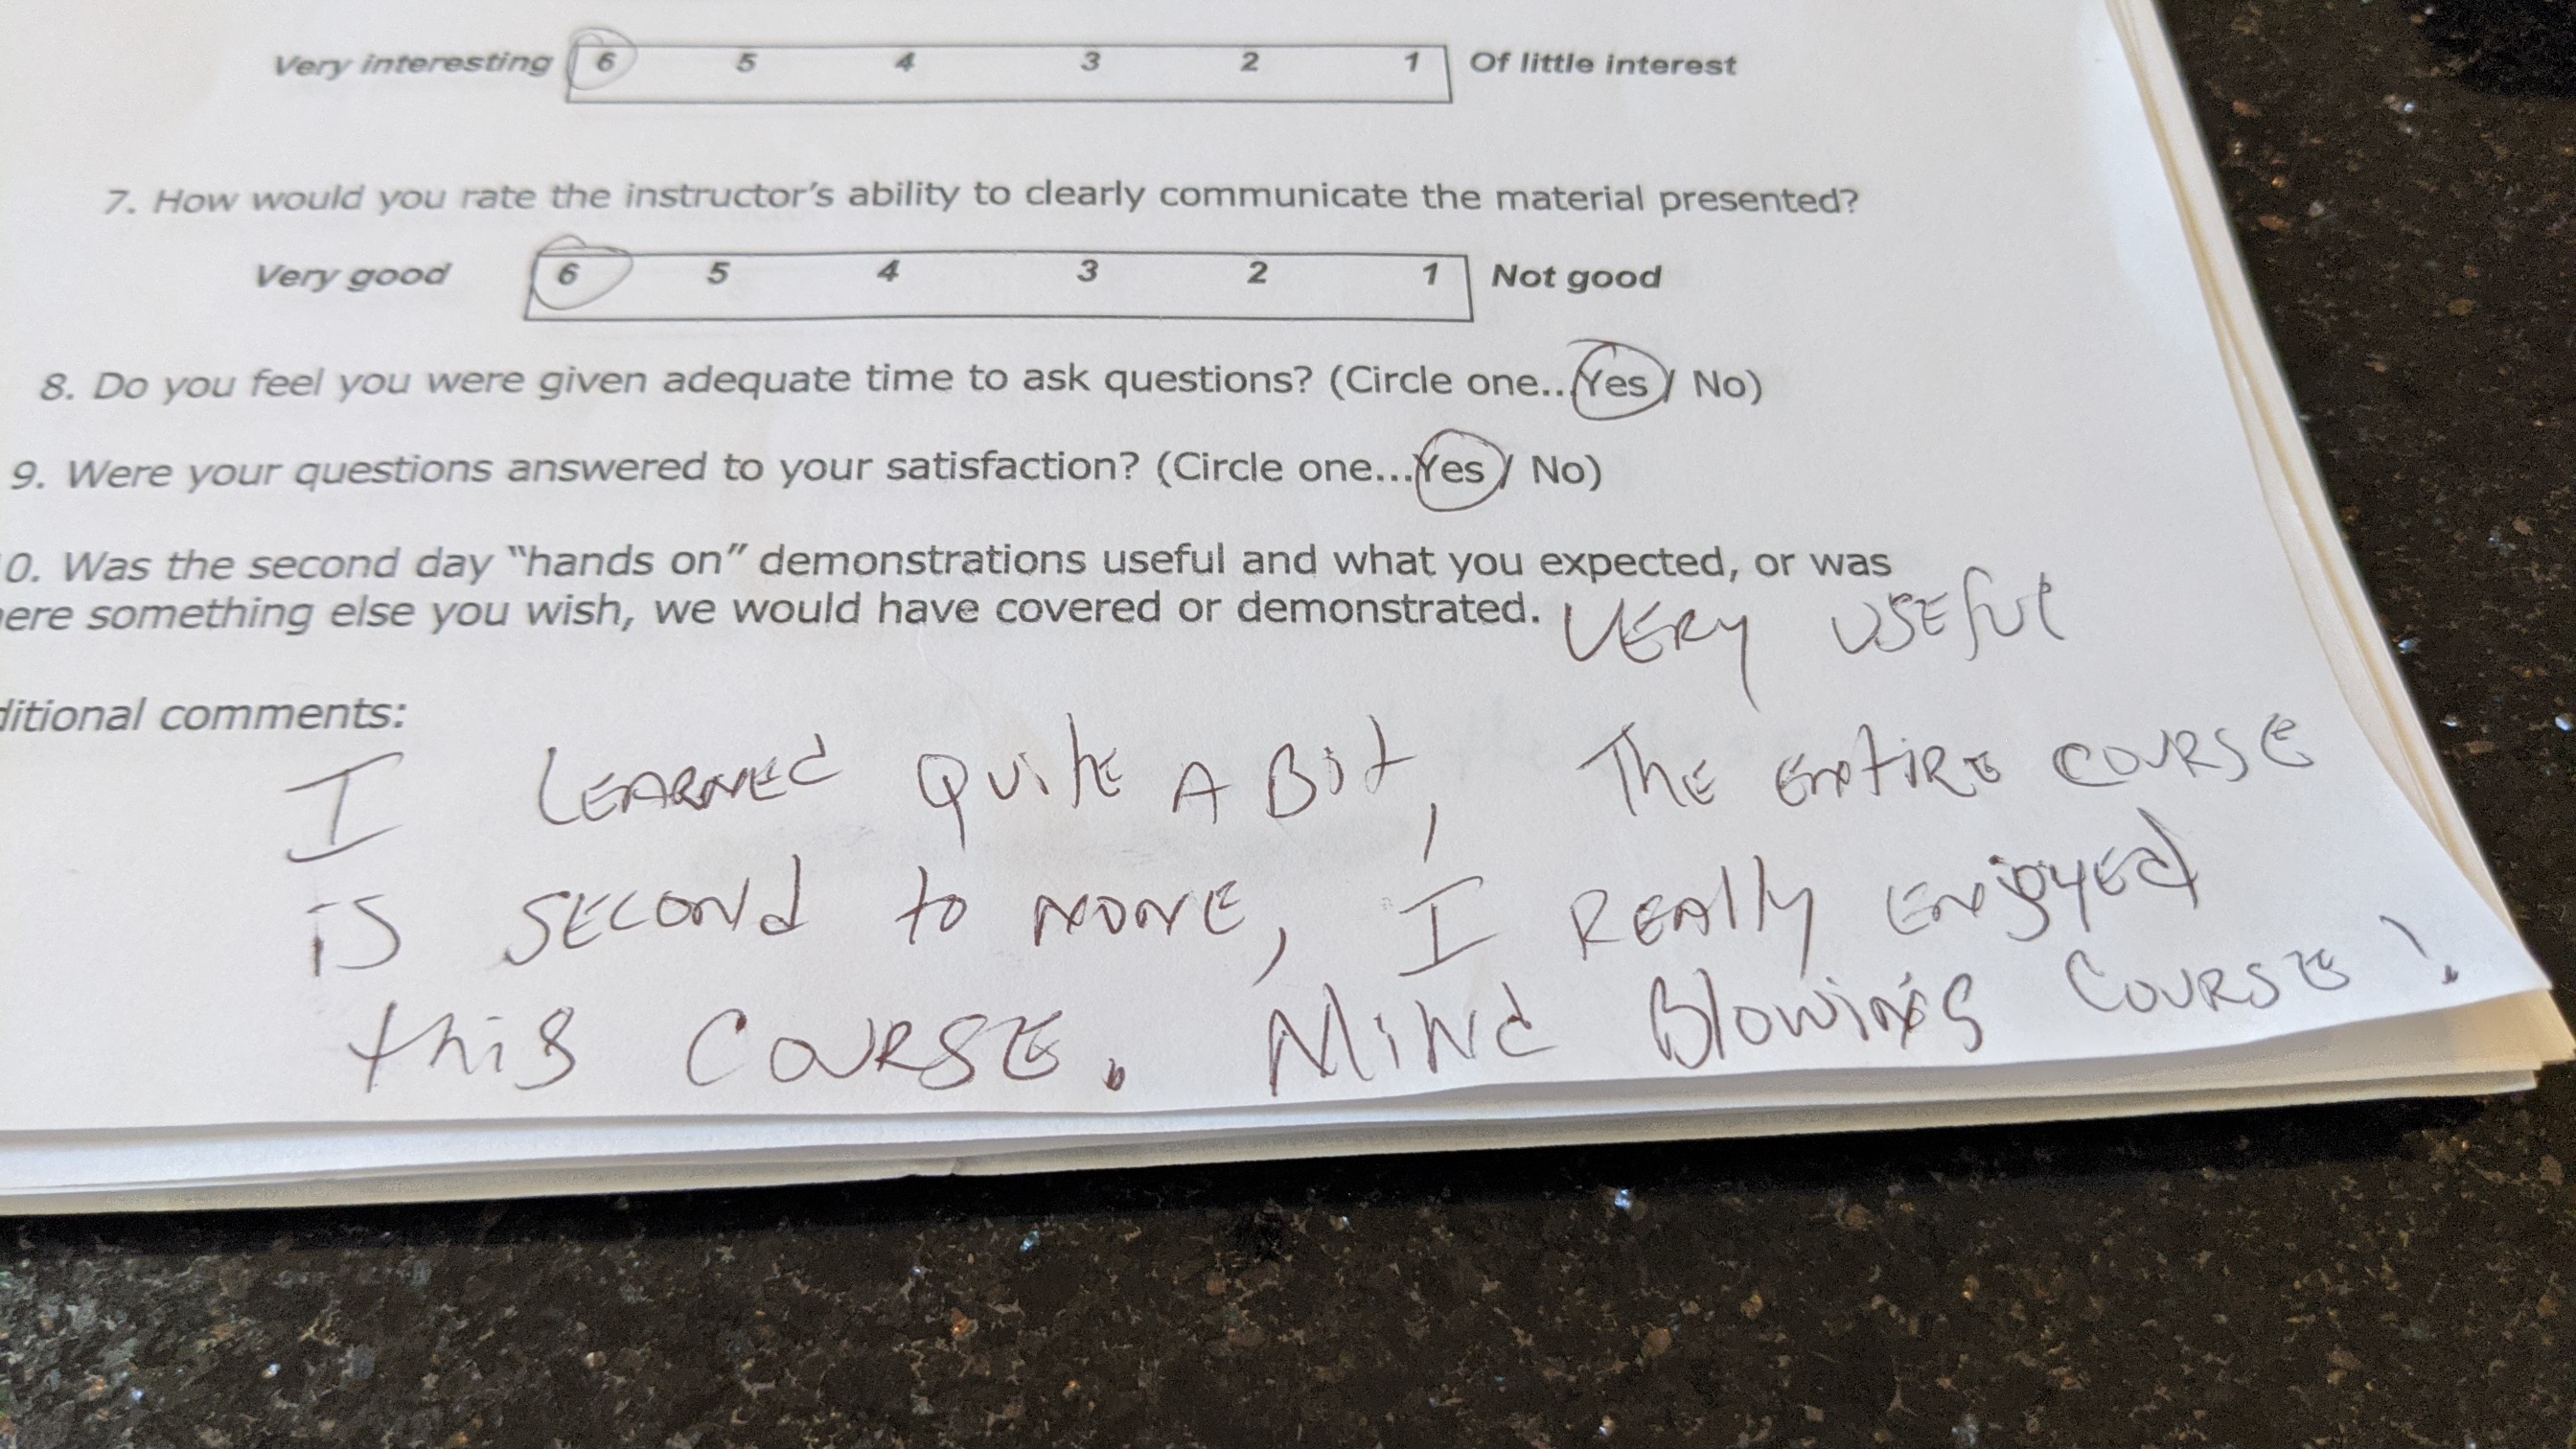 Very interesting 6 5 4 3 2 1 Of little interest
7. How would you rate the instructor's ability to clearly communicate the material presented?
Very good 6 5 4 3 2 1 Not good
8. Do you feel you were given adequate time to ask questions? (Circle one...Yes / No)
9. Were your questions answered to your satisfaction? (Circle one...Yes / No)
0. Was the second day "hands on" demonstrations useful and what you expected, or was
ere something else you wish, we would have covered or demonstrated. VERY USEfUl
ditional comments:
I LEARNEd QuitE A Bit, ThE ENtiRE COURSE
is SECONd to NONE, I REAlly ENjoyEd
this COURSE. MiNd BlowiNg COURSE!